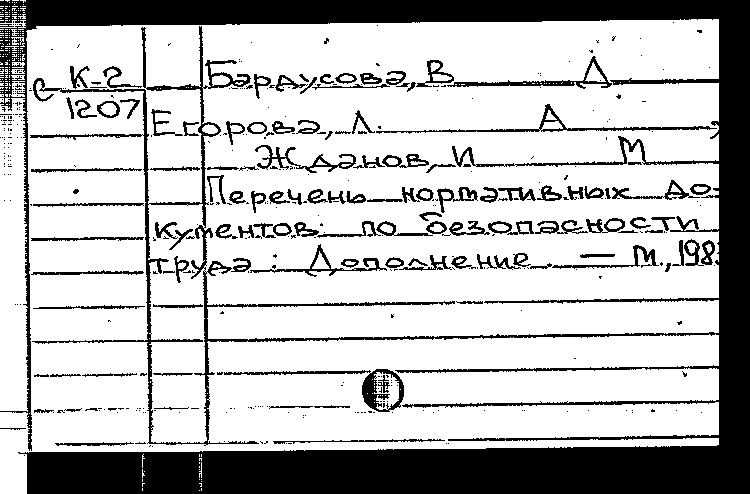 с К-2 Бардусова, В Л
1207
Егорова, Л. А ,
Жданов, И М
Перечень нормативных до-
кументов по безопасности
труда : Дополнение. — М., 198